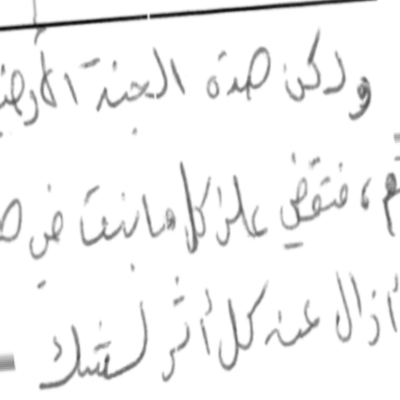 ولكن هذه الجنة الأرضية
، فتقضي على كل ما نبت في
أزال عنه كل أثر لشك